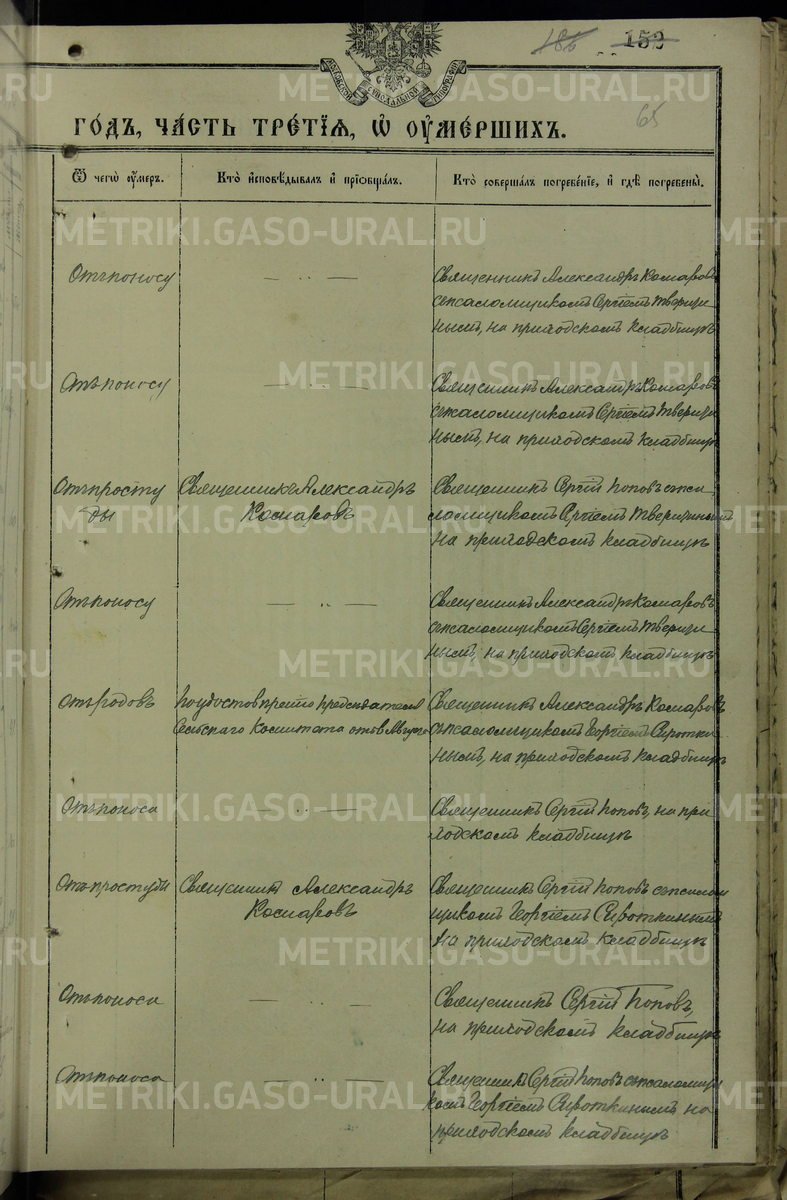 186
152
65
МОСКОВСКОЙ СИНОДАЛЬНОЙ ТИПОГРАФІИ
ГО́ДЪ, ЧА́СТЬ ТРЕ́ТІѦ, Ѡ҆ ОУ҆МЕ́РШИХЪ.
Ѿ чегѡ̀ оу҆́меръ.
Кто̀ и҆сповѣ́дывалъ и҆ прїобща́лъ.
Кто̀ соверша́лъ погребе́нїе, и҆ гдѣ̀ погребены̀.
Отъ поносу
— .. —
Священникъ Александръ Комаровъ
съ псаломщикомъ Сергіемъ Тверити
нымъ, на приходскомъ кладбищѣ
Отъ поносу
— .. —
Священникъ Александръ Комаровъ
съ псаломщикомъ Сергіемъ Тверити
нымъ, на приходскомъ кладбищѣ
Отъ просту
ды
Священникъ Александръ
Комаровъ
Священникъ Сергій Поповъ съ пса
ломщикомъ Сергіемъ Тверитинымъ
на приходскомъ кладбищѣ
Отъ поносу
— .. —
Священникъ Александръ Комаровъ
съ псаломщикомъ Сергіемъ Тверити
нымъ, на приходскомъ кладбищѣ
Отъ родовъ
По удостовѣренію Предсѣдателя
Сельскаго Комитета отъ 8 Августа
Священникъ Александръ Комаровъ
съ псаломщикомъ Георгіемъ Сиротки
нымъ, на приходскомъ кладбищѣ
Отъ поноса
— .. —
Священникъ Сергій Поповъ, на при
ходскомъ кладбищѣ
Отъ простуды
Священникъ Александръ
Комаровъ
Священникъ Сергій Поповъ съ псалом
щикомъ Георгіемъ Сироткинымъ
на приходскомъ кладбищѣ
Отъ поноса
— .. —
Священникъ Сергій Поповъ,
на приходскомъ кладбищѣ
Отъ поноса
— .. —
Священникъ Сергій Поповъ съ псаломщи
комъ Георгіемъ Сироткинымъ на
приходскомъ кладбищѣ
METRIKI.GASO-URAL.RU